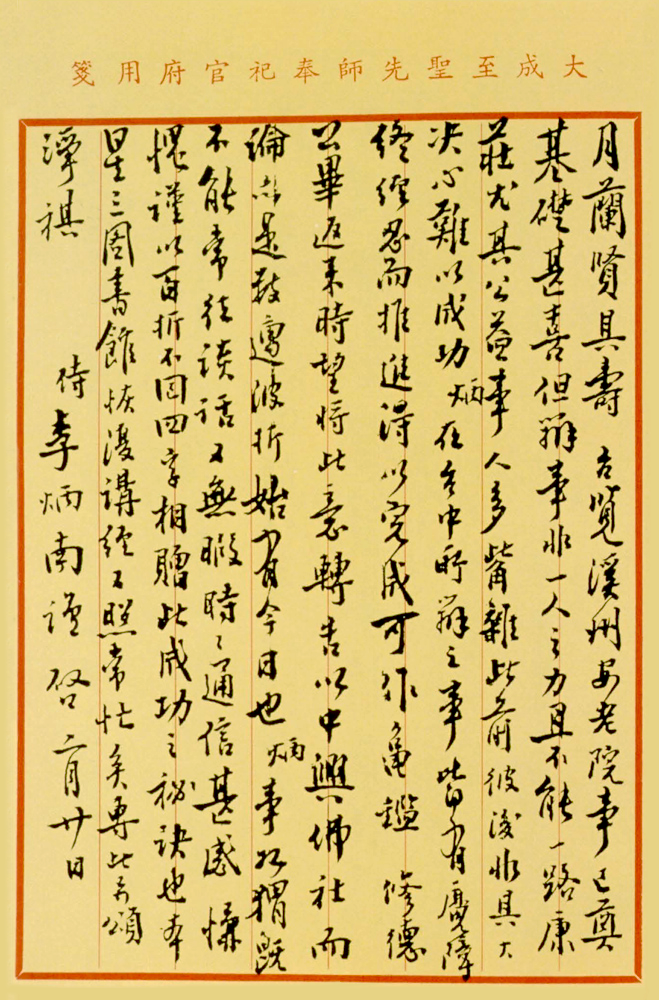 大成至聖先師奉祀官府用箋
月蘭賢具壽 台覽溪州安老院事已奠
基礎甚喜但辦事非一人之力且不能一路康
莊尤其公益事人多嘴雜此前彼後非具大
決心難以成功炳在台中所辦之事皆有魔障
終經忍而推進得以完成可作龜鑑 修德
公畢返來時望將此意轉告以中興佛社而
論亦是數遭波折始有今日也炳事如猬既
不能常往談話又無暇時々通信甚感慊
愧謹以百折不回四字相贈此成功之秘訣也本
星三圖書館恢復講經又照常忙矣專此即頌
淨祺 侍李炳南謹啓二月廿日